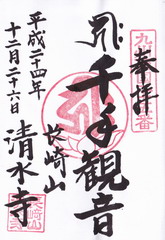 奉拝
千手観音
長崎山
清水寺
平成二十四年
十二月二十六日